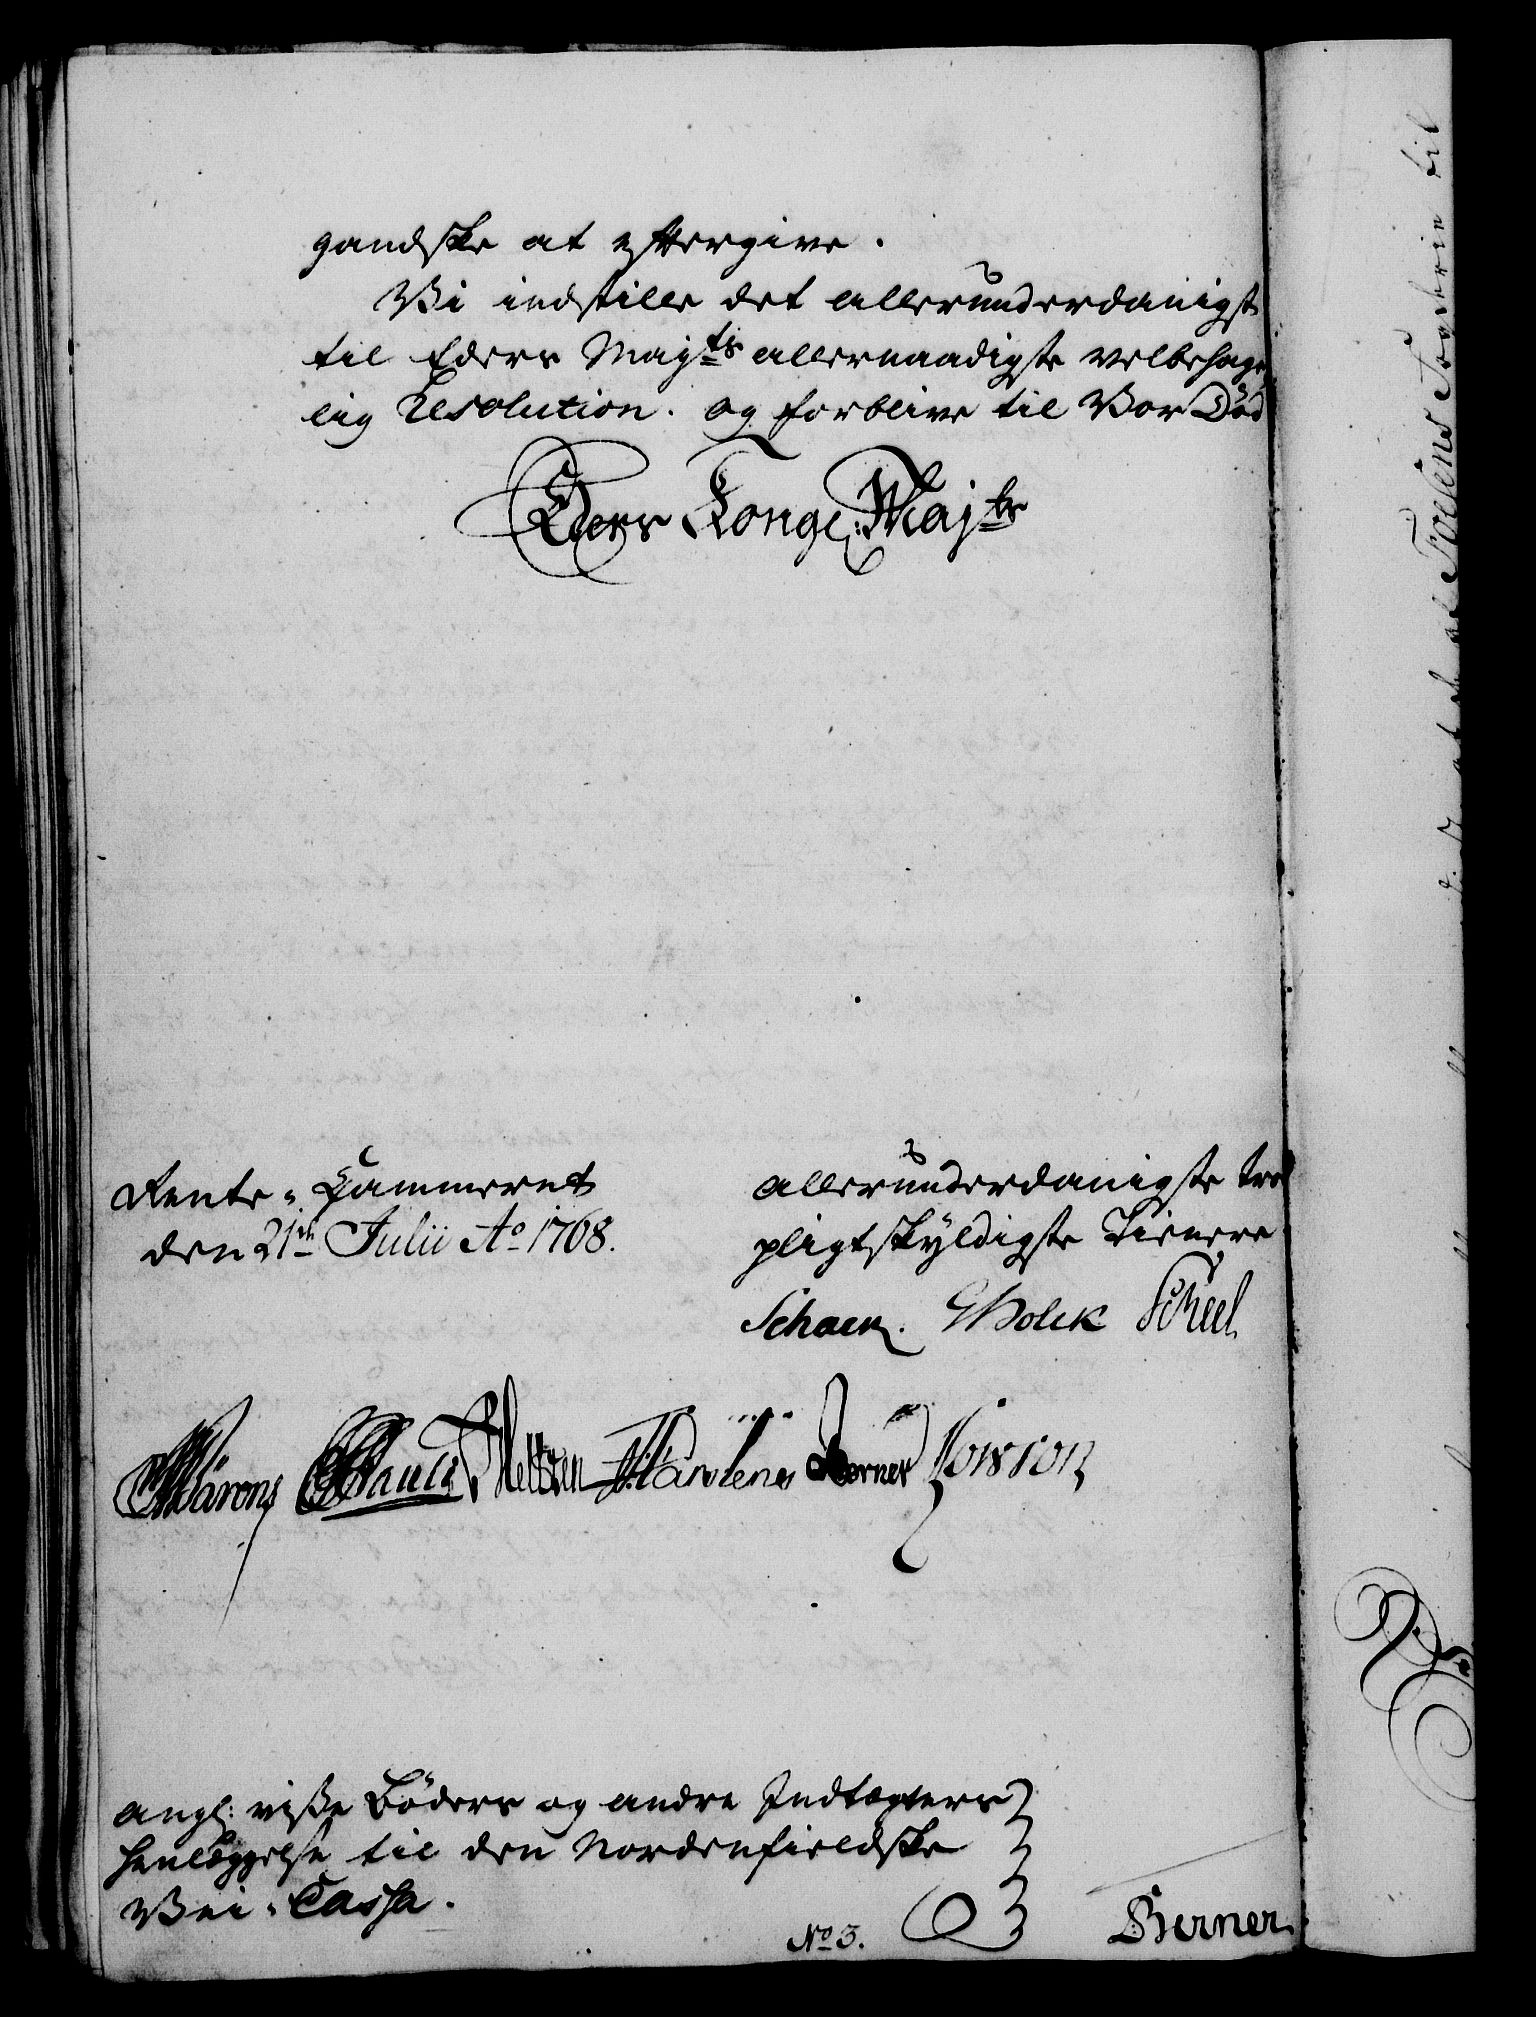 gandske at eftergive.
Vi indstille det allerunderdanigst
til Eders Majts allernaadigste velbehage
lig Resolution. og forblive til Vor Død
Eders Kongel: Majts
Rente-Cammeret
den 21de Julii Ao 1768.
allerunderdanigste troe
pligtskyldigste Tienere
Schack. Holck Scheel
Berner
angl: visse Bøders og andre Indtægters
henlæggelse til den Nordenfieldske
Vei-Cassa.
No 3.
Berner